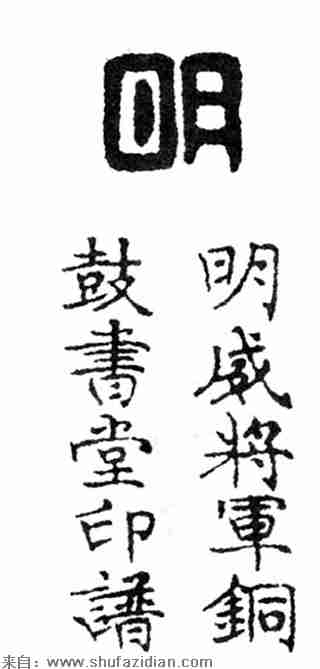 明
明威將軍銅
鼓書堂印譜
来自：www.shufazidian.com